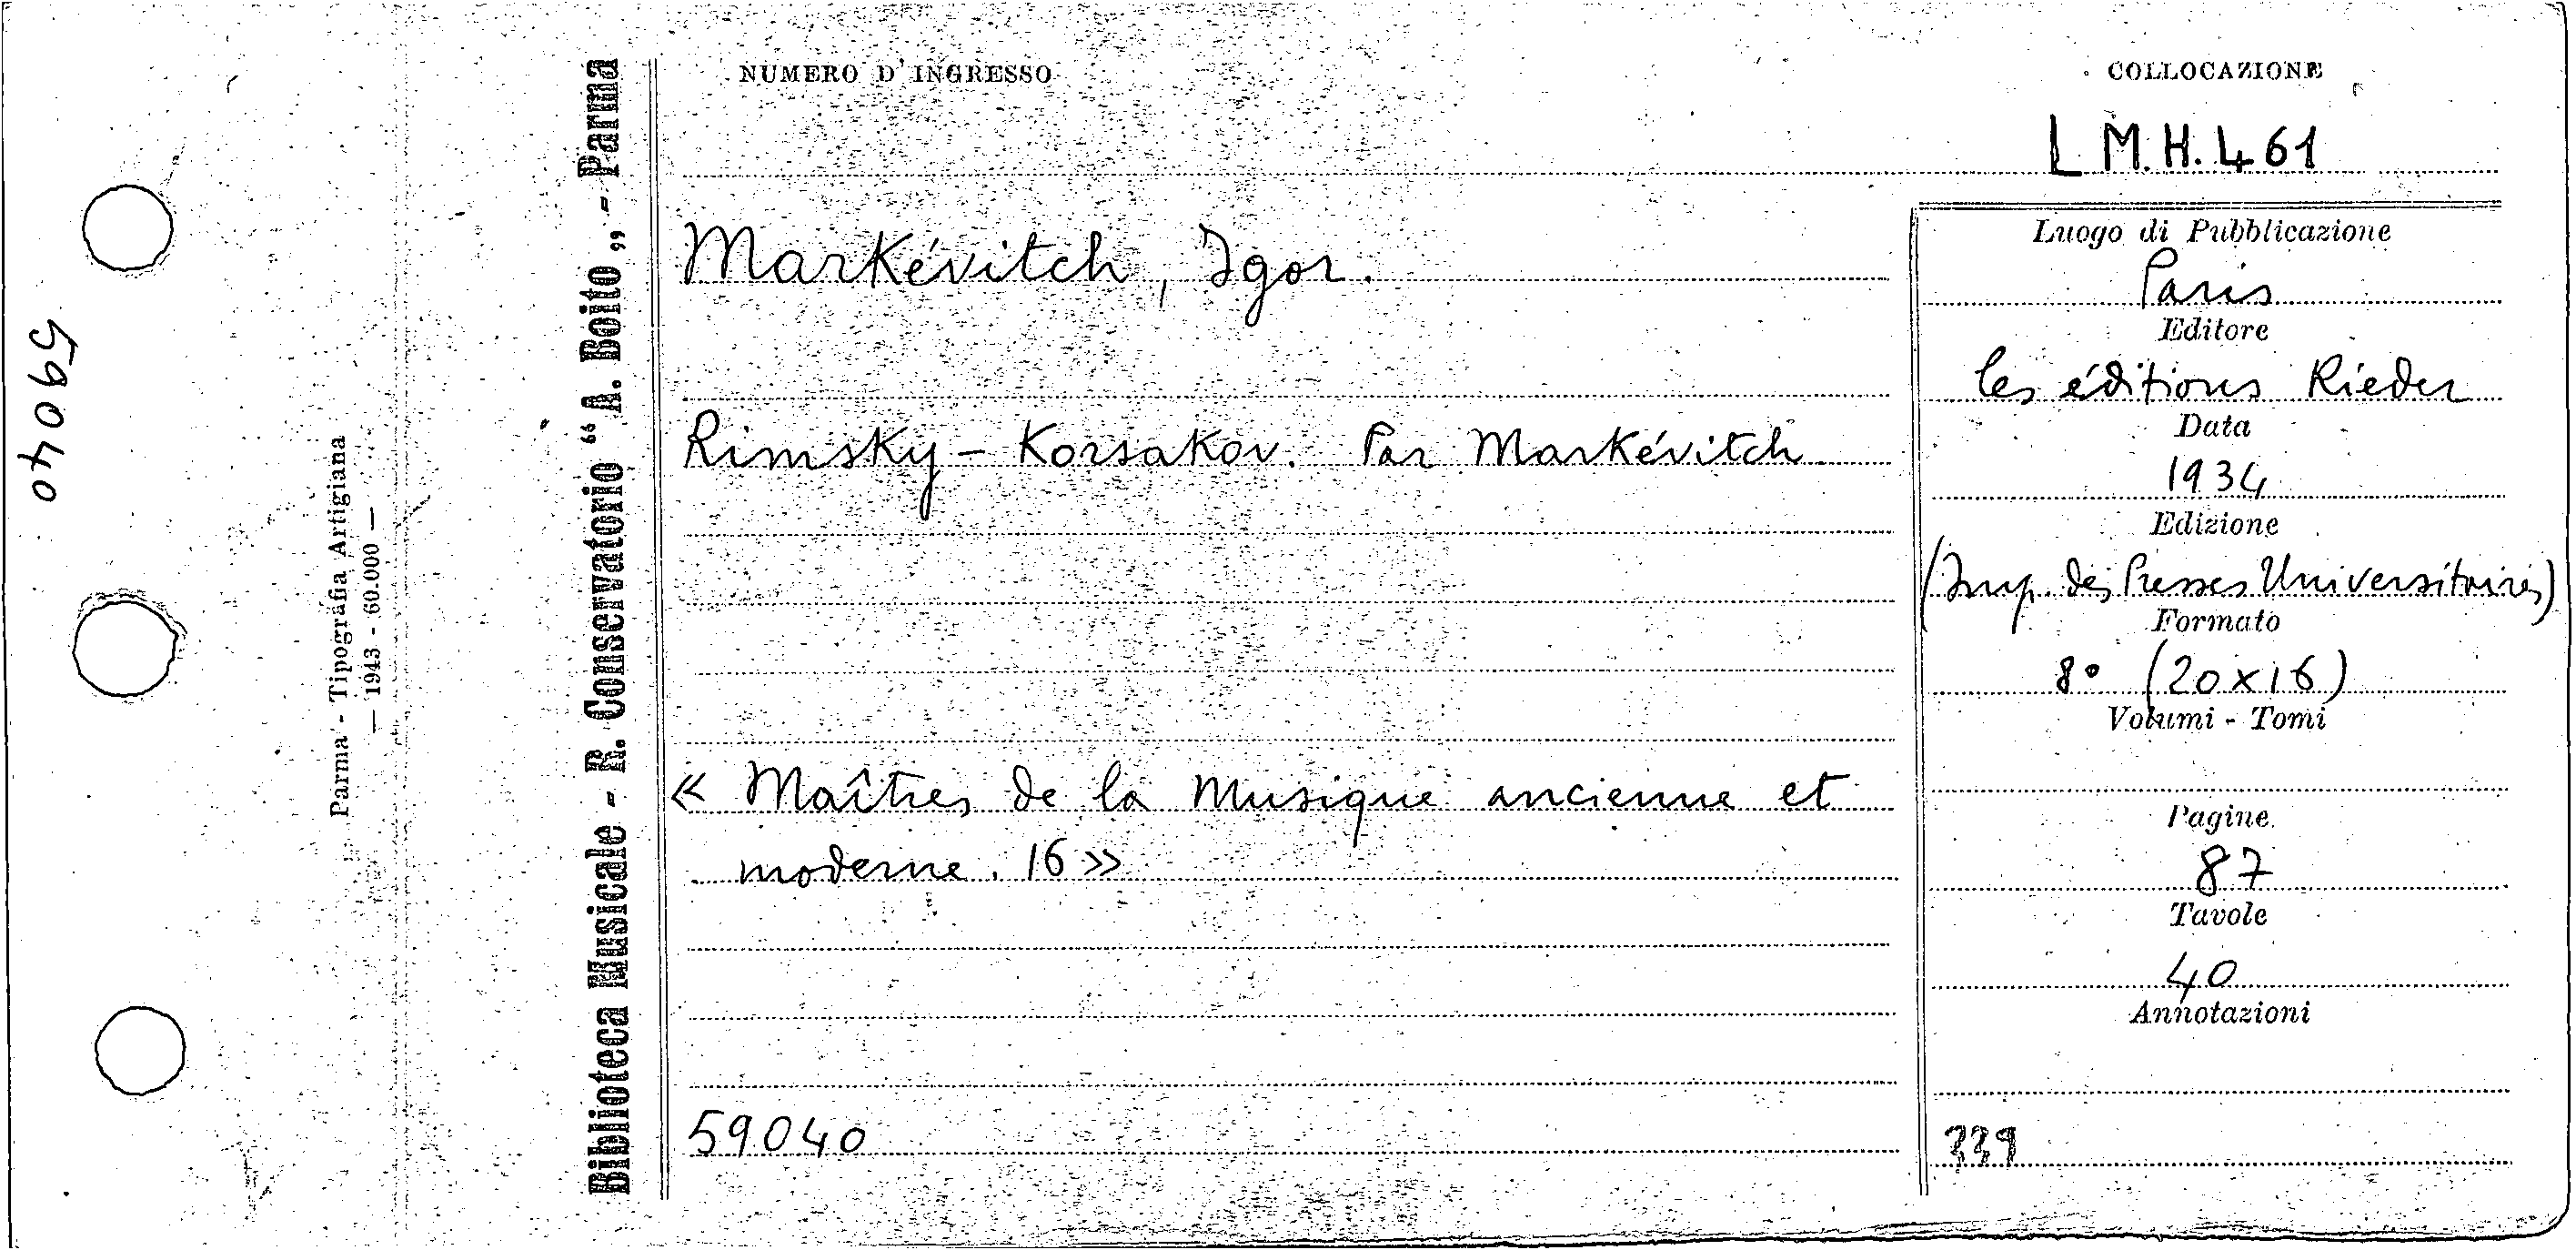 59040
Parma - Tipografia Artigiana
— 1943 - 60.000 —
Biblioteca Musicale - R. Conservatorio “A. Boito„ - Parma
NUMERO D'INGRESSO
COLLOCAZIONE
L M.H. 461
Markévitch, Igor.
Rimsky - Korsakov. Par Markévitch.
« Maîtres de la Musique ancienne et
moderne. 16 »
59040
Luogo di Pubblicazione
Paris
Editore
les éditions Rieder
Data
1934
Edizione
(Imp. des Presses Universitaires)
Formato
8° (20 x 16)
Volumi - Tomi
Pagine
87
Tavole
40
Annotazioni
339